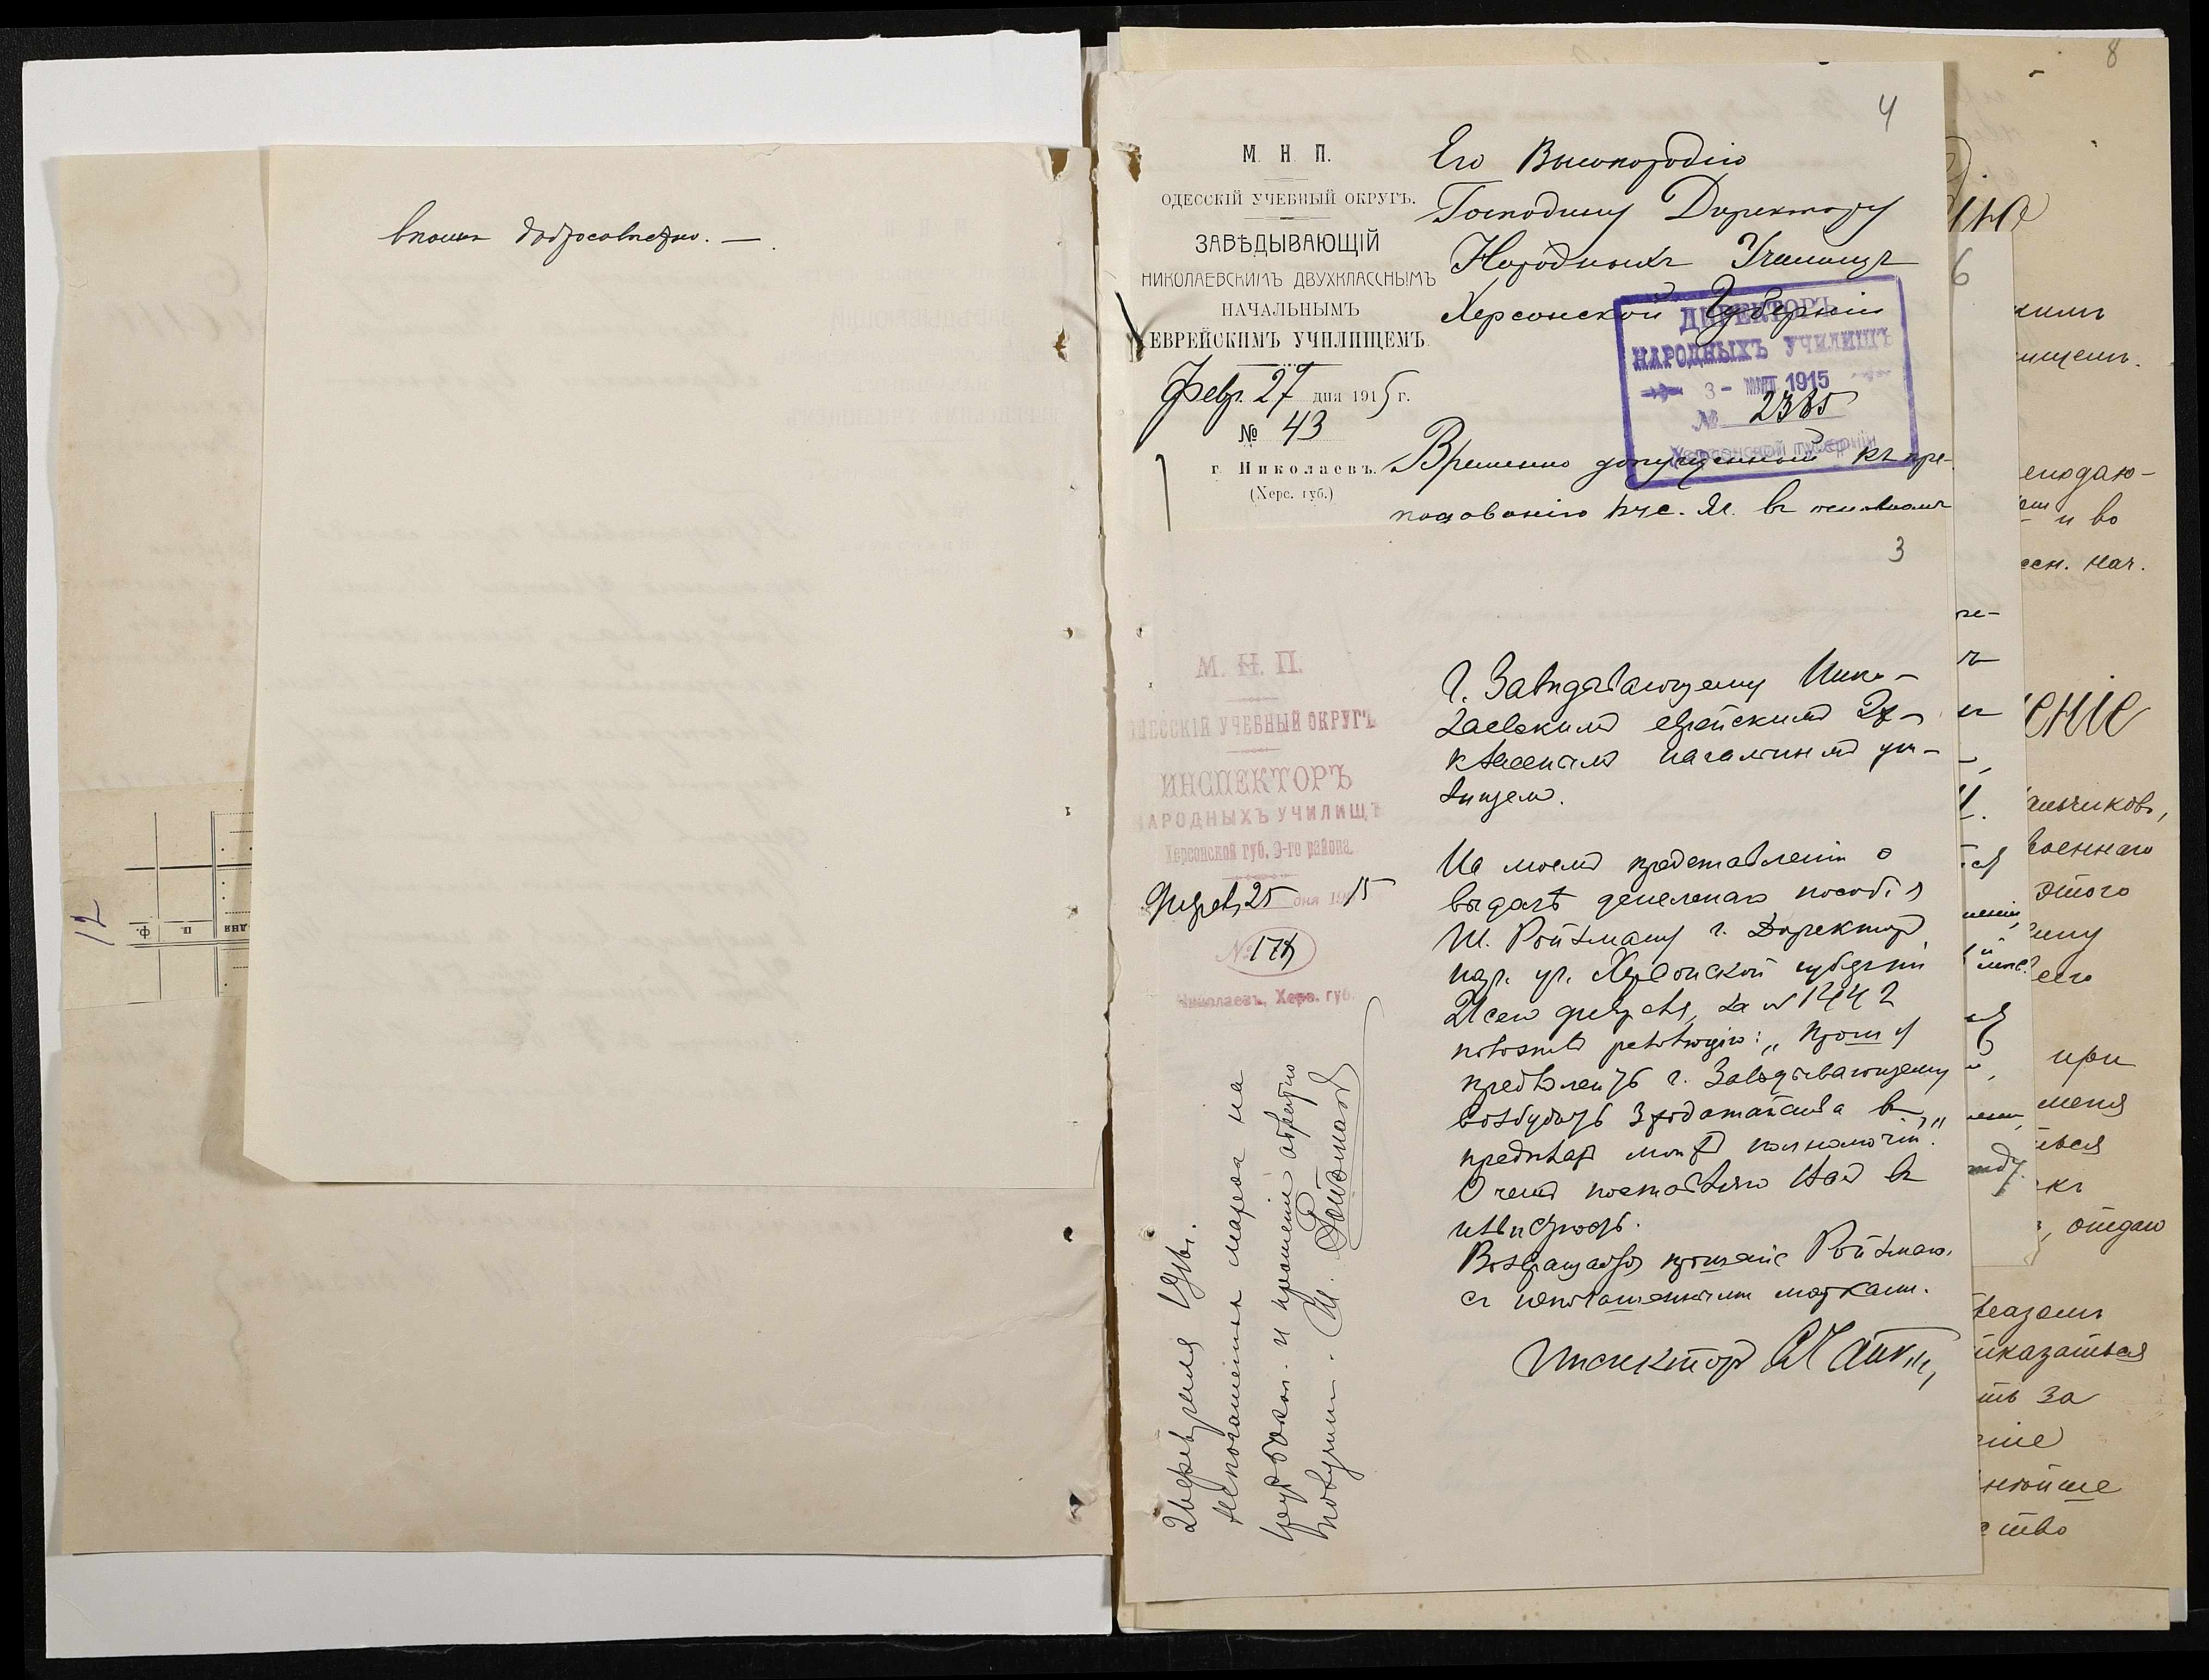 вполне добросовестно. —
12
4
М. Н. П.
ОДЕССКІЙ УЧЕБНЫЙ ОКРУГЪ.
ЗАВѢДЫВАЮЩІЙ
НИКОЛАЕВСКИМЪ ДВУХКЛАССНЫМЪ
НАЧАЛЬНЫМЪ
ЕВРЕЙСКИМЪ УЧИЛИЩЕМЪ.
Февр. 27 дня 1915 г.
№ 43
г. Николаевъ.
(Херс. губ.)
Его Высокородію
Господину Директору
Народныхъ Училищъ
Херсонской Губерніи
ДИРЕКТОРЪ
НАРОДНЫХЪ УЧИЛИЩЪ
3 - МАР 1915
№ 2385
Херсонской губерніи
Временно допущенный къ пре-
подаванію въ основномъ
3
М. Н. П.
ОДЕССКІЙ УЧЕБНЫЙ ОКРУГЪ
ИНСПЕКТОРЪ
НАРОДНЫХЪ УЧИЛИЩЪ
Херсонской губ. 9-го района.
Февраля 25 дня 1915
№ 178
Николаевъ, Херс. губ.
Г. Завѣдывающему Нико-
лаевскимъ еврейскимъ 2х-
класснымъ начальнымъ учи-
лищемъ.
На моемъ представленіи о
выдачѣ денежнаго пособія
Ш. Ройтману г. Директоръ
нар. уч. Херсонской губерніи
21 сего февраля, за № 1442
положилъ резолюцію: „Прошу
предложить г. Завѣдывающему
возбудить ходатайства въ
предѣлахъ моихъ полномочій".
О чемъ поставляю Васъ въ
извѣстность.
Возвращается прошеніе Ройтмана
съ непогашенными марками.
Инспекторъ
непогашенныя марки на
и прошеніе обратно
получилъ. Ш. Ройтманъ
8
6
кимъ
ищемъ.
еподаю-
и во
нач.
еніе
альчиковъ,
военнаго
этого
его
при
меня
ться
къ
, отдаю
казаться
ть за
ство